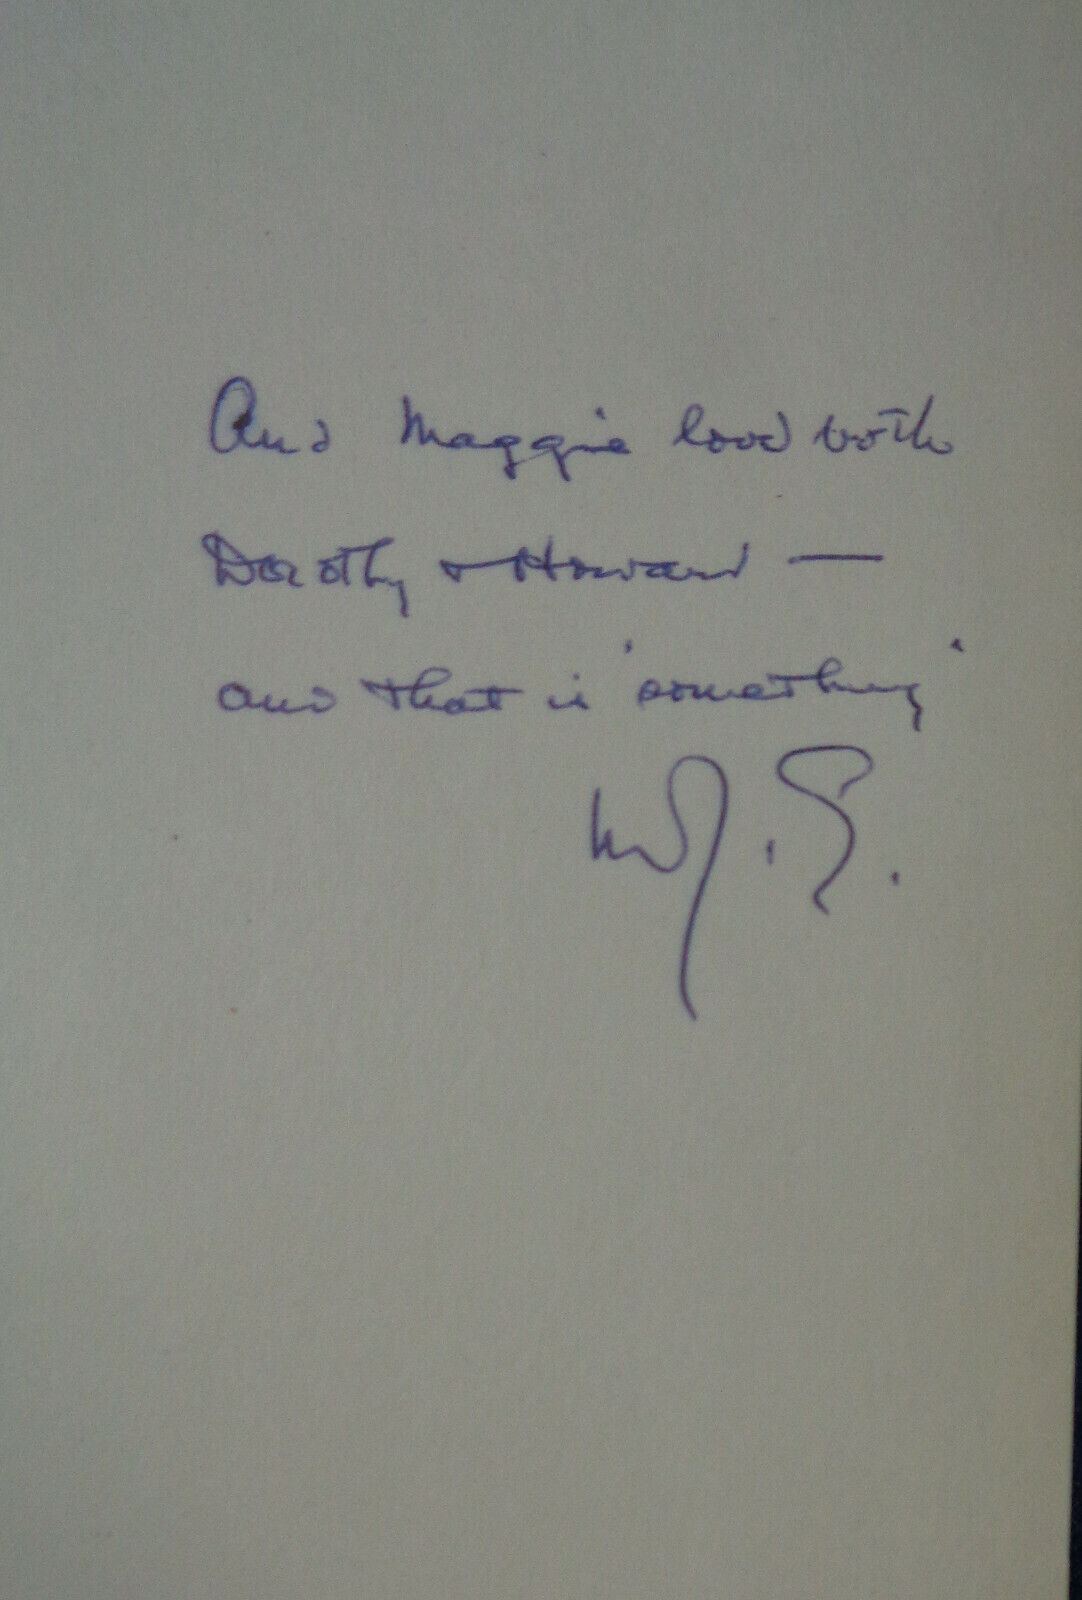 And Maggie loved both
Dorothy + Howard —
and that is 'something'